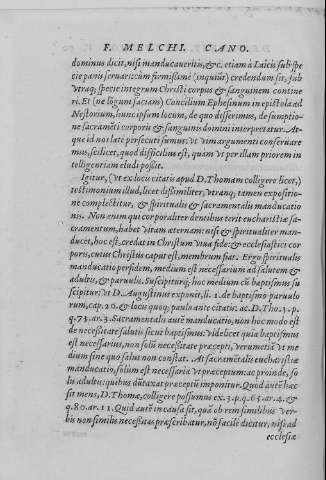 F. MELCHI. CANO.
dominus dicit, nisi manducaueritis, &c. etiam à Laicis sub spe
cie panis seruari: cùm firmissimè (inquiũt) credendum sit, sub
vtraq; specie integrum Christi corpus & sanguinem contine
ri. Et (ne lõgum faciam) Concilium Ephesinum in epistola ad
Nestorium, hunc ipsum locum, de quo disserimus, de sumptio-
ne sacramẽti corporis & sanguinis domini interpretatur. At-
que id nos latè persecuti sumus: vt vim argumenti conseruare
mus, scilicet, quod difficilius est, quam vt per illam priorem in
telligentiam elodi posssit.
Igitur, (vt ex locu citatis apud D. Thomam colligere licet,)
testimonium illud, licet dissimiliter, vtranq; tamen expositio-
ne complectitur, & spiritualis & sacramentalis manducatio-
nis. Non enim qui corporaliter dentibus terit eucharistiæ sa-
cramentum, habet vitam æternam: nisi & spiritualiter man-
ducet, hoc est, credat in Christum viua fide: & ecclesiastici cor-
poris, cuius Christus caput est, membrum fiat. Ergo spiritualis
manducatio per fidem, medium est necessarium ad salutem &
adultis, & paruulis. Suscipiturq; hoc medium cũ baptismus su
scipitur: vt D. Augustinus exponit, li. 1. de baptismo paruulo
rum, cap. 20. & locu quoq; paulò ante citatis: ac D. Tho. 3. p.
q. 73. ar. 3. Sacramentalis autẽ manducatio, non hoc modo est
de necessitate salutis sicut baptismus: videlicet quia baptismus
est necessarius, non solũ necessitate præcepti, verumetiã vt me
dium sine quo salus non constat. At sacramẽtalis eucharistiæ
manducatio, solùm est necessaria vt præceptum: ac proinde, so
lis adultis: quibus dũtaxat præceptũ imponitur. Quòd autẽ hæc
sit mens, D. Thomæ, colligere possumus ex. 3. p. q. 65. ar. 4. &
q. 80. ar. 11. Quid autẽ in causa sit, quã ob rem similibus ver-
bis non similis necessitas præscribatur, nõ facilè dicitur, nisi ad
ecclesiæ